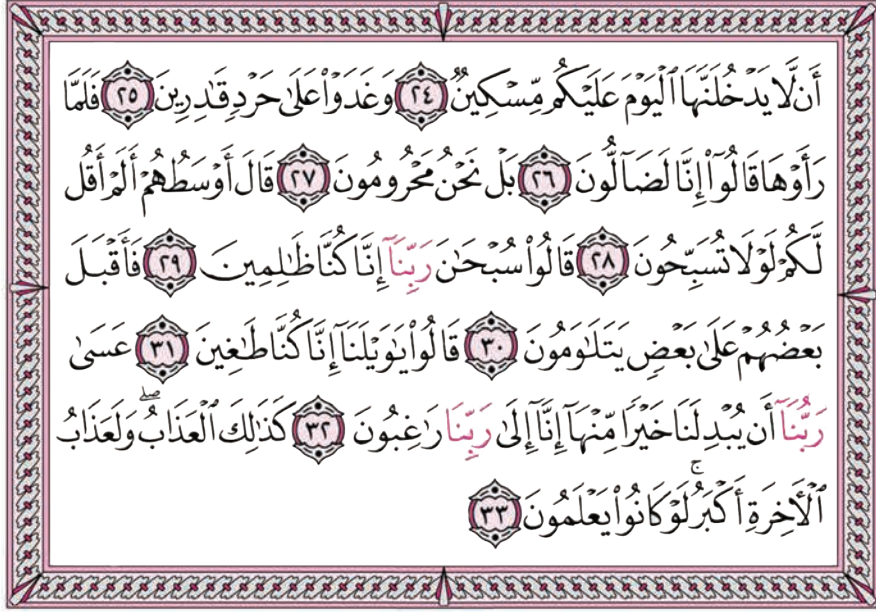 أَن لَّا يَدْخُلَنَّهَا ٱلْيَوْمَ عَلَيْكُم مِّسْكِينٌ ٢٤ وَغَدَوْا۟ عَلَىٰ حَرْدٍ قَٰدِرِينَ ٢٥ فَلَمَّا
رَأَوْهَا قَالُوٓا۟ إِنَّا لَضَآلُّونَ ٢٦ بَلْ نَحْنُ مَحْرُومُونَ ٢٧ قَالَ أَوْسَطُهُمْ أَلَمْ أَقُل
لَّكُمْ لَوْلَا تُسَبِّحُونَ ٢٨ قَالُوا۟ سُبْحَٰنَ رَبِّنَآ إِنَّا كُنَّا ظَٰلِمِينَ ٢٩ فَأَقْبَلَ
بَعْضُهُمْ عَلَىٰ بَعْضٍ يَتَلَٰوَمُونَ ٣٠ قَالُوا۟ يَٰوَيْلَنَآ إِنَّا كُنَّا طَٰغِينَ ٣١ عَسَىٰ
رَبُّنَآ أَن يُبْدِلَنَا خَيْرًا مِّنْهَآ إِنَّآ إِلَىٰ رَبِّنَا رَٰغِبُونَ ٣٢ كَذَٰلِكَ ٱلْعَذَابُ ۖ وَلَعَذَابُ
ٱلْءَاخِرَةِ أَكْبَرُ ۚ لَوْ كَانُوا۟ يَعْلَمُونَ ٣٣